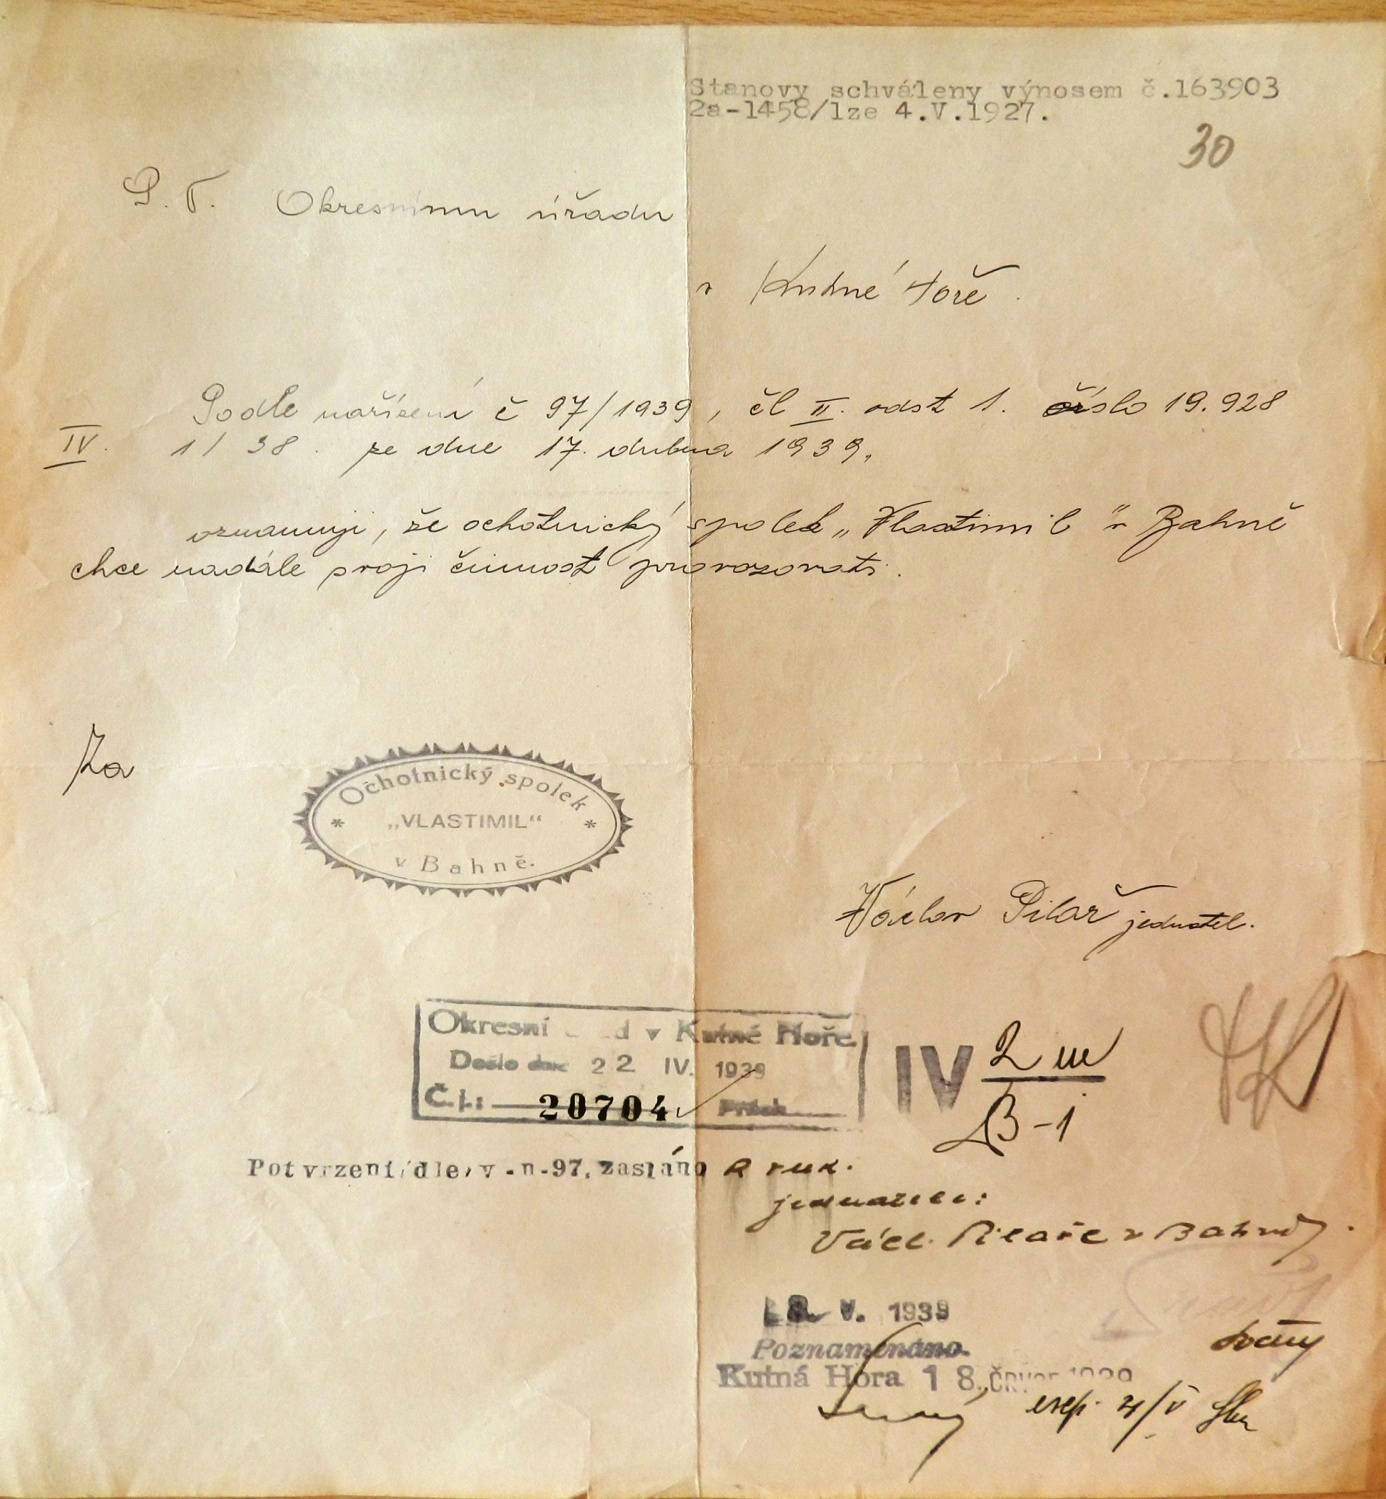 Stanovy schváleny výnosem č.163903
2a-1458/1ze 4.V.1927.
30
P. T. Okresnímu úřadu
v Kutné Hoře.
Podle nařízení č 97/1939, čl II. odst 1. číslo 19.928
IV. 1/38. ze dne 17. dubna 1939.
oznamuji, že ochotnický spolek „Vlastimil" v Bahně
chce nadále svoji činnost provozovati.
Za
Ochotnický spolek
* „VLASTIMIL“ *
v Bahně.
Václav Pilař jednatel.
Okresní d v Kutné Hoře.
Došlo dne 22 IV. 1939
Č.j.: 20704 Příloh
IV 2
B-1
Potvrzení dle v.n.97, zasláno k ruk.
jednatele:
Václ. Pilaře v Bahně.
8. V. 1939
Poznamenáno.
Kutná Hora 18. ČRVCE 1939
exp. 4/V